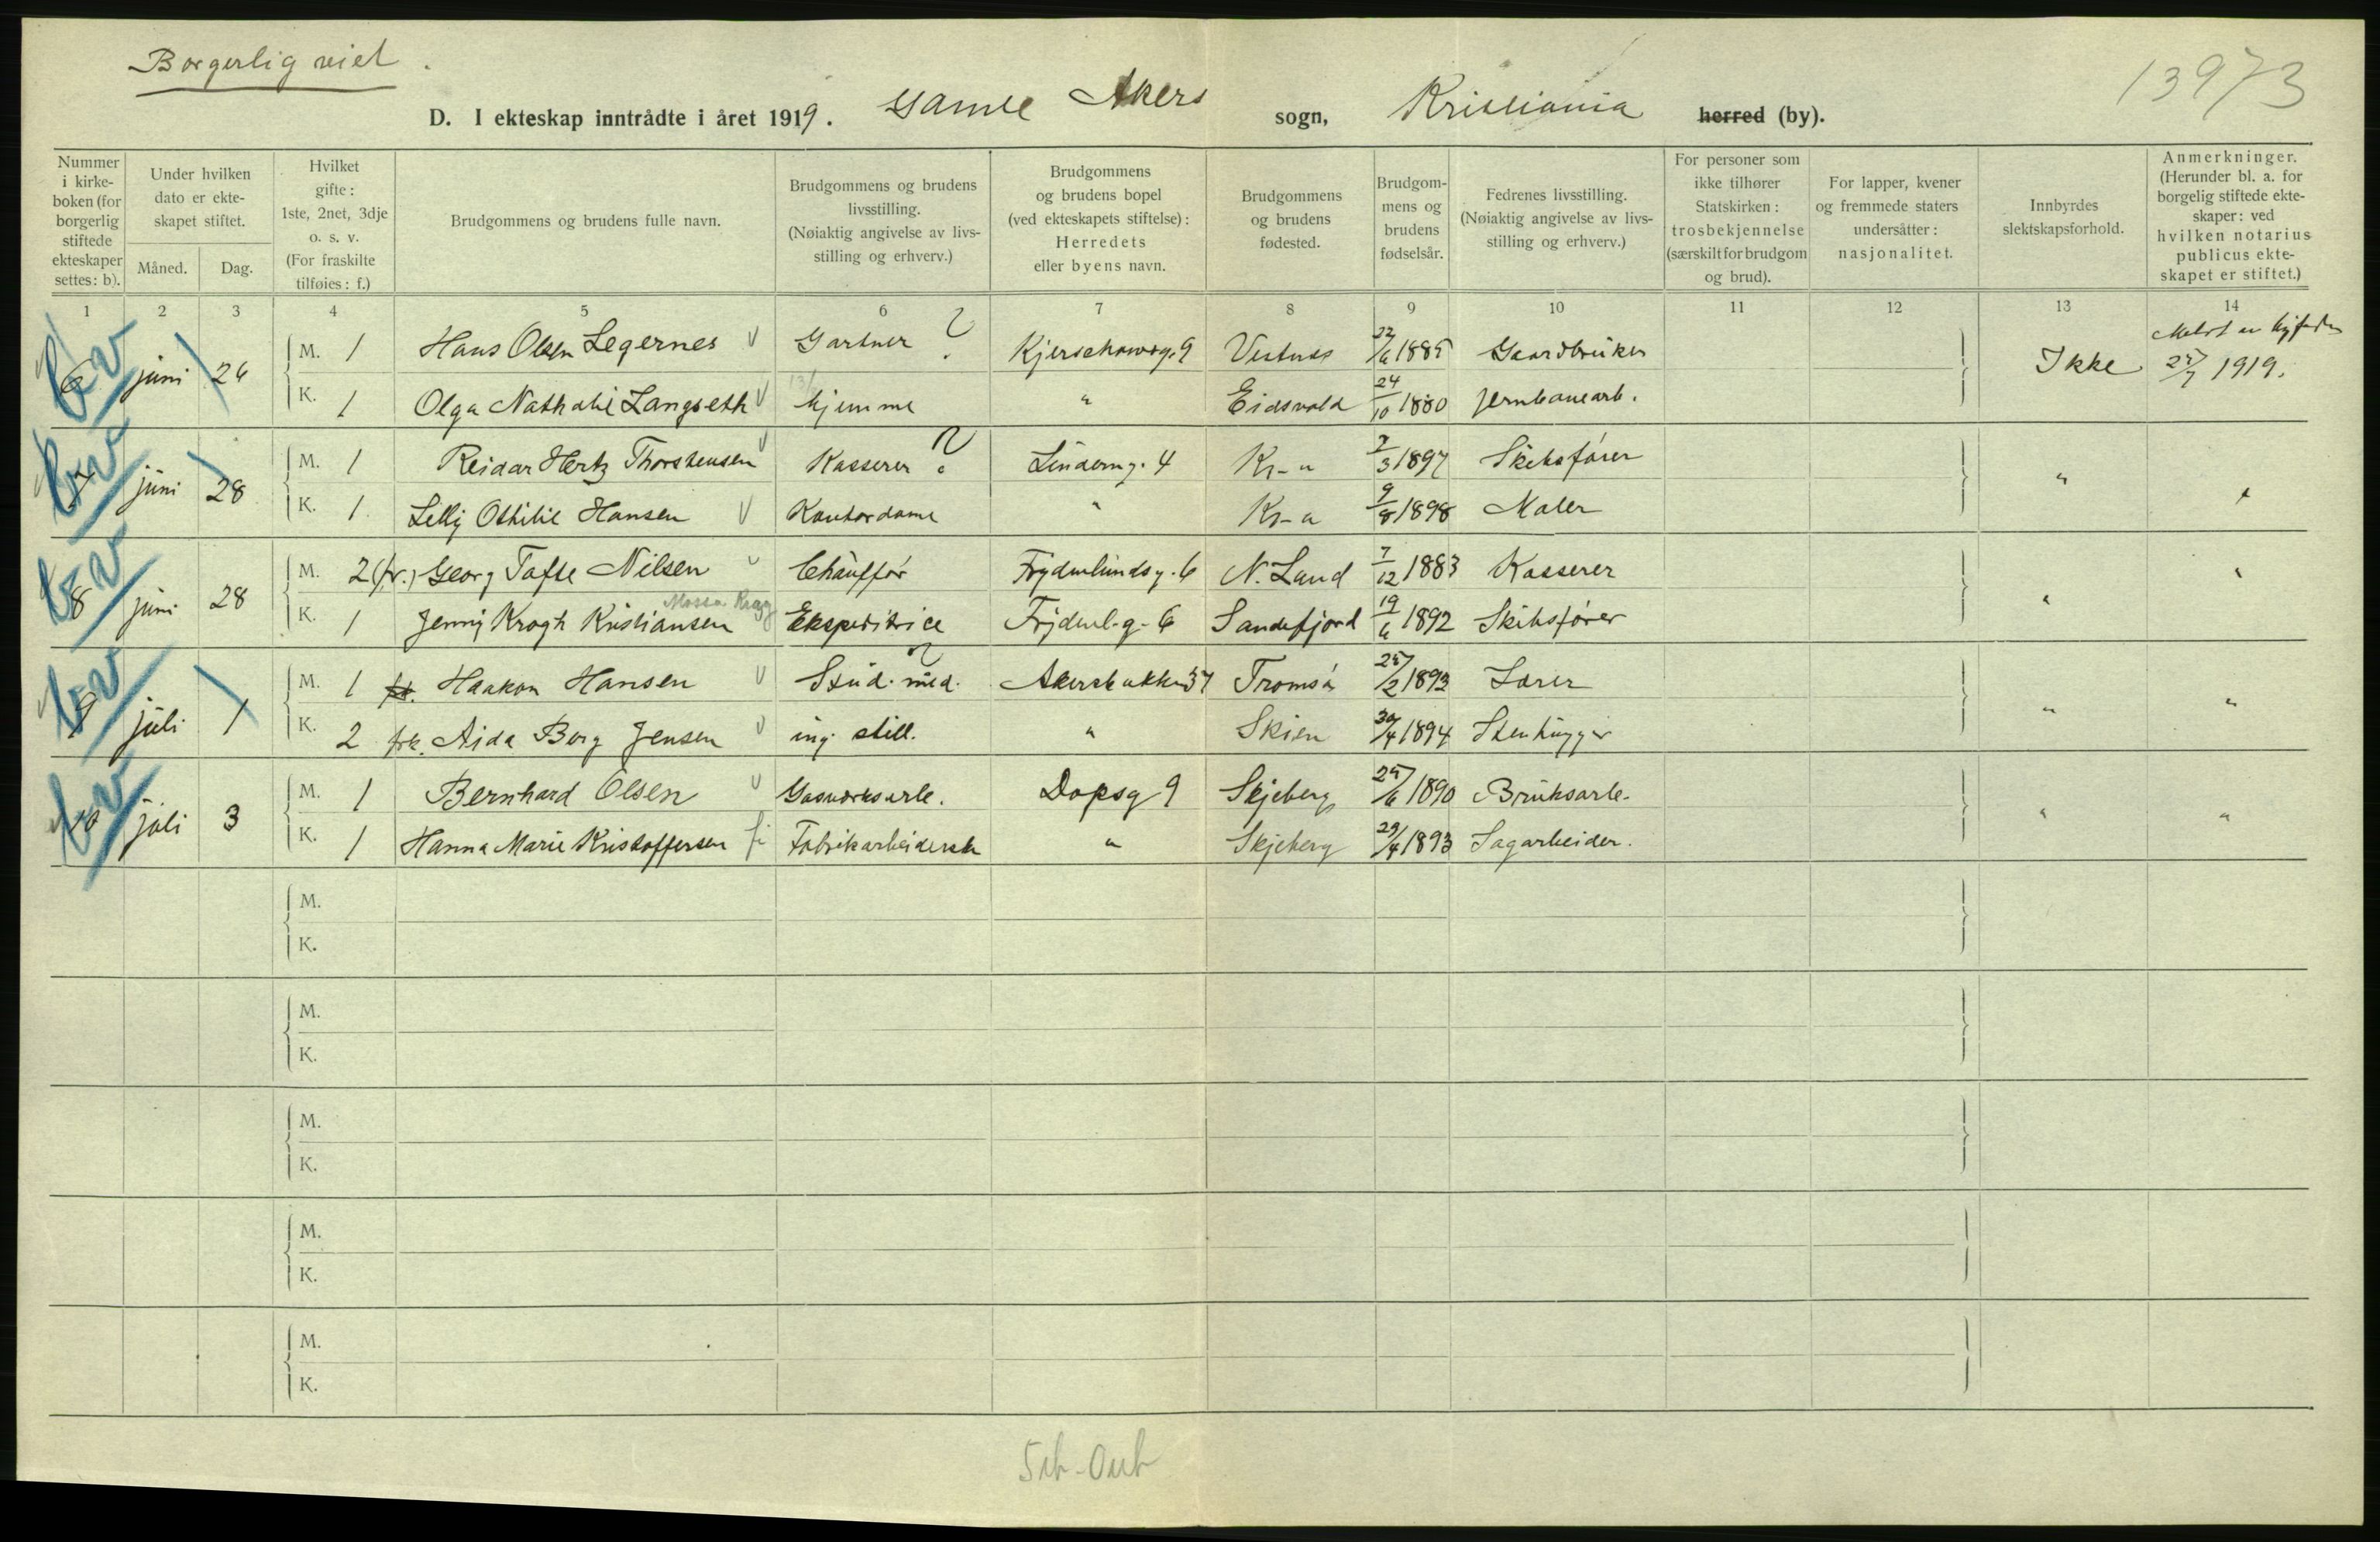 Borgerlig viet.
13973
D. I ekteskap inntrådte i året 1919. Gamle Akers sogn, Kristiania herred (by).
Nummer i kirke-boken (for borgerlig stiftede ekteskaper settes: b).
Under hvilken dato er ekte-skapet stiftet.
Måned. Dag.
Hvilket gifte: 1ste, 2net, 3dje o. s. v. (For fraskilte tilføies: f.)
Brudgommens og brudens fulle navn.
Brudgommens og brudens livsstilling. (Nøiaktig angivelse av livs-stilling og erhverv.)
Brudgommens og brudens bopel (ved ekteskapets stiftelse): Herredets eller byens navn.
Brudgommens og brudens fødested.
Brudgom-mens og brudens fødselsår.
Fedrenes livsstilling. (Nøiaktig angivelse av livs-stilling og erhverv.)
For personer som ikke tilhører Statskirken: trosbekjennelse (særskilt for brudgom og brud).
For lapper, kvener og fremmede staters undersåtter: nasjonalitet.
Innbyrdes slektskapsforhold.
Anmerkninger. (Herunder bl. a. for borgelig stiftede ekte-skaper: ved hvilken notarius publicus ekte-skapet er stiftet.)
1 2 3 4 5 6 7 8 9 10 11 12 13 14
6 juni 24 M. 1 Hans Olsen Legernes Gartner ? 9 22/6 1885 Gaardbruker Ikke 25/7 1919.
K. 1 Olga Nathalie Langseth hjemme " Eidsvold 24/10 1880 Jernbanearb.
7 juni 28 M. 1 Reidar Hertz Thorstensen Kasserer ? Linderng. 4 Kr-a 7/3 1897 Skibsfører " "
K. 1 Lelly Othilie Hansen Kontordame " Kr-a 9/8 1898 Maler
8 juni 28 M. 2 (fr.) Georg Tofte Nilsen Chauffør Frydenlundsg. 6 N. Land 7/12 1883 Kasserer " "
K. 1 Jenny Krogh Kristiansen Ekspeditrice Frydenl.g. 6 Sandefjord 19/6 1892 Skibsfører
9 juli 1 M. 1 Haakon Hansen Stud. med. ? Akersbakken 37 Tromsø 25/2 1893 Lærer " "
K. 2 frk. Aida Berg Jensen ing. still. " Skien 30/4 1894 Stenhugger
10 juli 3 M. 1 Bernhard Olsen Gasverksarb. Dopsg 9 Skjeberg 25/6 1890 Bruksarb. " "
K. 1 Hanna Marie Kristoffersen Fabrikarbeiderske " Skjeberg 29/4 1893 Sagarbeider.
M.
K.
M.
K.
M.
K.
M.
K.
M.
K.